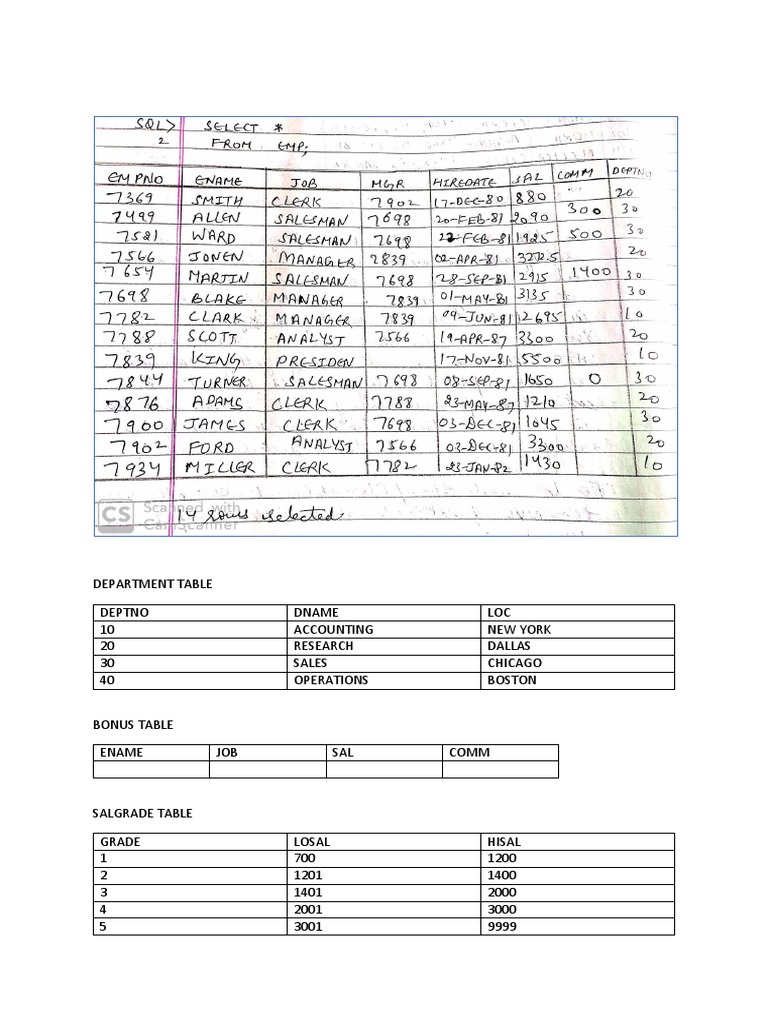 SQL> SELECT *
2 FROM EMP;
EMPNO ENAME JOB MGR HIREDATE SAL COMM DEPTNO
7369 SMITH CLERK 7902 17-DEC-80 880 20
7499 ALLEN SALESMAN 7698 20-FEB-81 2090 300 30
7521 WARD SALESMAN 7698 22-FEB-81 1925 500 30
7566 JONEN MANAGER 2839 02-APR-81 3272.5 20
7654 MARTIN SALESMAN 7698 28-SEP-81 2915 1400 30
7698 BLAKE MANAGER 7839 01-MAY-81 3135 30
7782 CLARK MANAGER 7839 09-JUN-81 2695 10
7788 SCOTT ANALYST 7566 19-APR-87 3300 20
7839 KING PRESIDEN 17-NOV-81 5500 10
7844 TURNER SALESMAN 7698 08-SEP-81 1650 0 30
7876 ADAMS CLERK 7788 23-MAY-87 1210 20
7900 JAMES CLERK 7698 03-DEC-81 1045 30
7902 FORD ANALYST 7566 03-DEC-81 3300 20
7934 MILLER CLERK 7782 23-JAN-82 1430 10
CS Scanned with
CamScanner
14 rows selected.
DEPARTMENT TABLE
DEPTNO DNAME LOC
10 ACCOUNTING NEW YORK
20 RESEARCH DALLAS
30 SALES CHICAGO
40 OPERATIONS BOSTON
BONUS TABLE
ENAME JOB SAL COMM
SALGRADE TABLE
GRADE LOSAL HISAL
1 700 1200
2 1201 1400
3 1401 2000
4 2001 3000
5 3001 9999